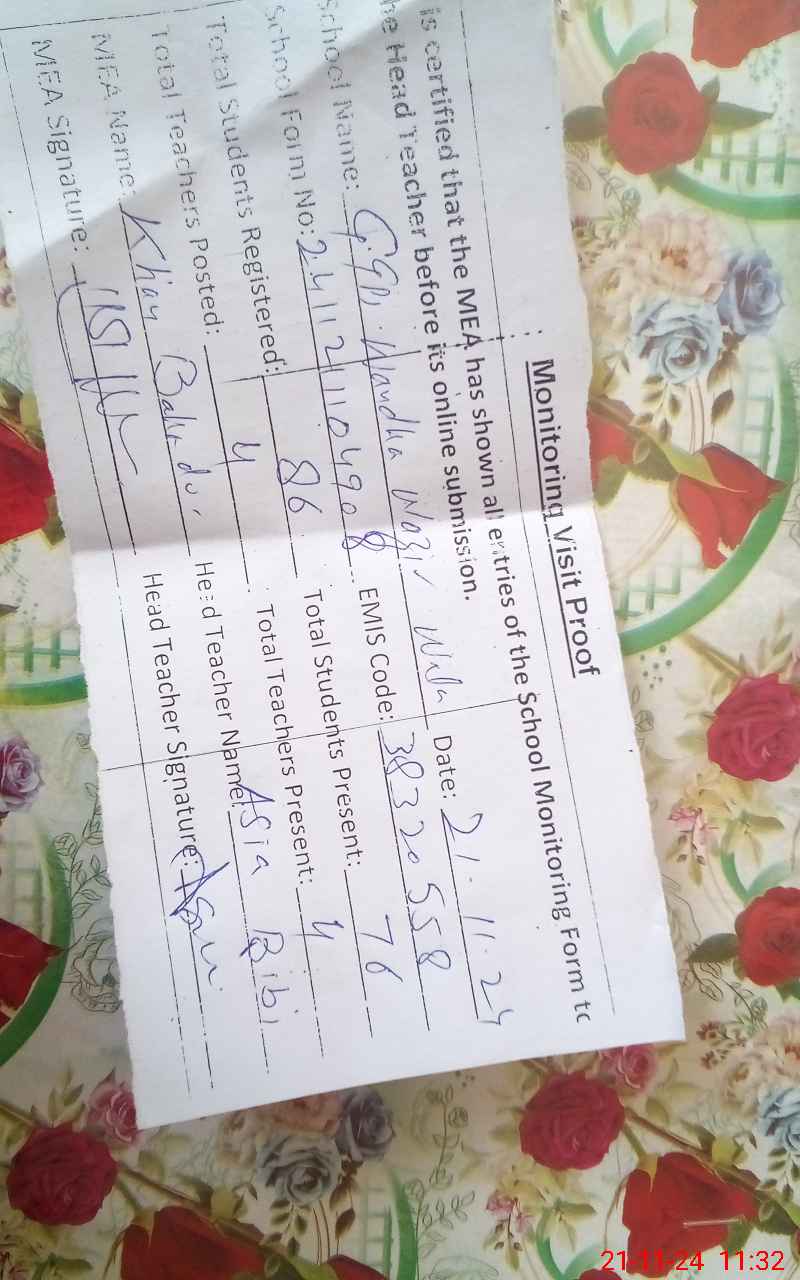 Monitoring Visit Proof
is certified that the MEA has shown all entries of the School Monitoring Form to
he Head Teacher before its online submission.
School Name: Wandha Wazir Wala Date: 21.11.24
School Form No: 2411211104908 EMIS Code: 38320558
Total Students Registered: 86 Total Students Present: 76
Total Teachers Posted: 4 Total Teachers Present: 4
MEA Name: Khan Bahadur Head Teacher Name: Asia Bibi
MEA Signature: Head Teacher Signature:
21-11-24 11:32